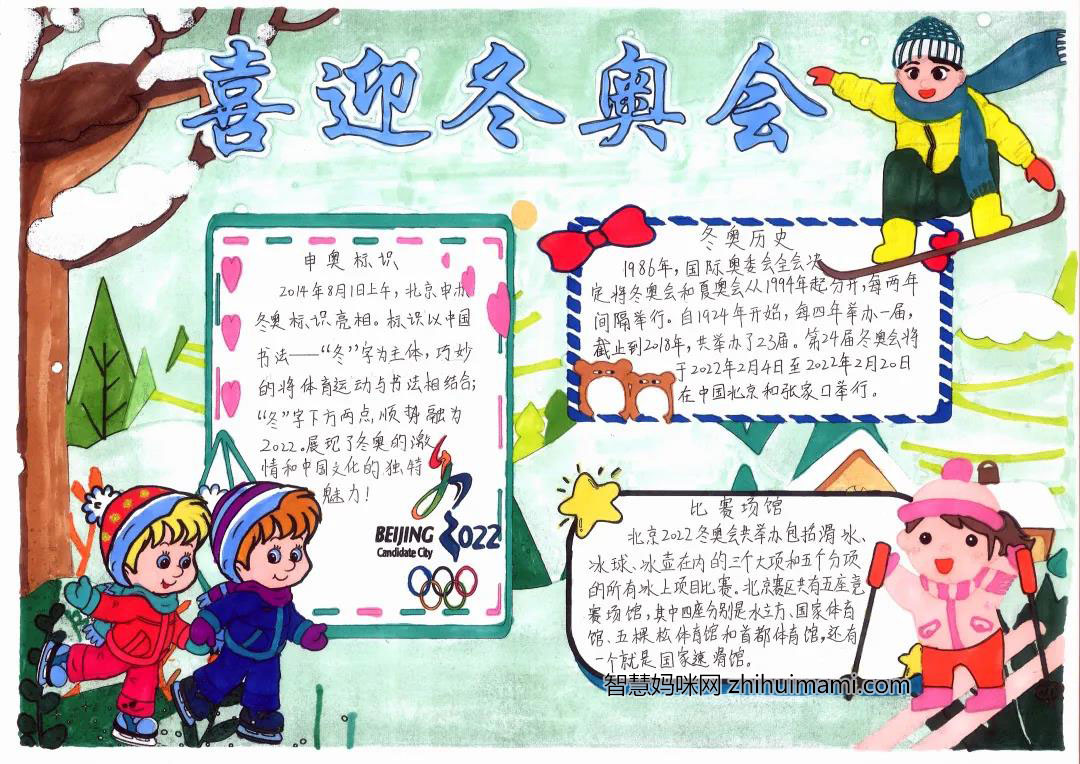 喜迎冬奥会
申奥标识
2014年8月1日上午，北京申办
冬奥标识亮相。标识以中国
书法——“冬”字为主体，巧妙
的将体育运动与书法相结合；
“冬”字下方两点顺势融为
2022。展现了冬奥的激
情和中国文化的独特
魅力！
BEIJING 2022
Candidate City
冬奥历史
1986年，国际奥委会全会决
定将冬奥会和夏奥会从1994年起分开，每两年
间隔举行。自1924年开始，每四年举办一届，
截止到2018年，共举办了23届。第24届冬奥会将
于2022年2月4日至2022年2月20日
在中国北京和张家口举行。
比赛场馆
北京2022冬奥会共举办包括滑冰、
冰球、冰壶在内的三个大项和五个分项
的所有冰上项目比赛。北京赛区共有五座竞
赛场馆，其中四座分别是水立方、国家体育
馆、五棵松体育馆和首都体育馆，还有
一个就是国家速滑馆。
智慧妈咪网 zhihuimami.com